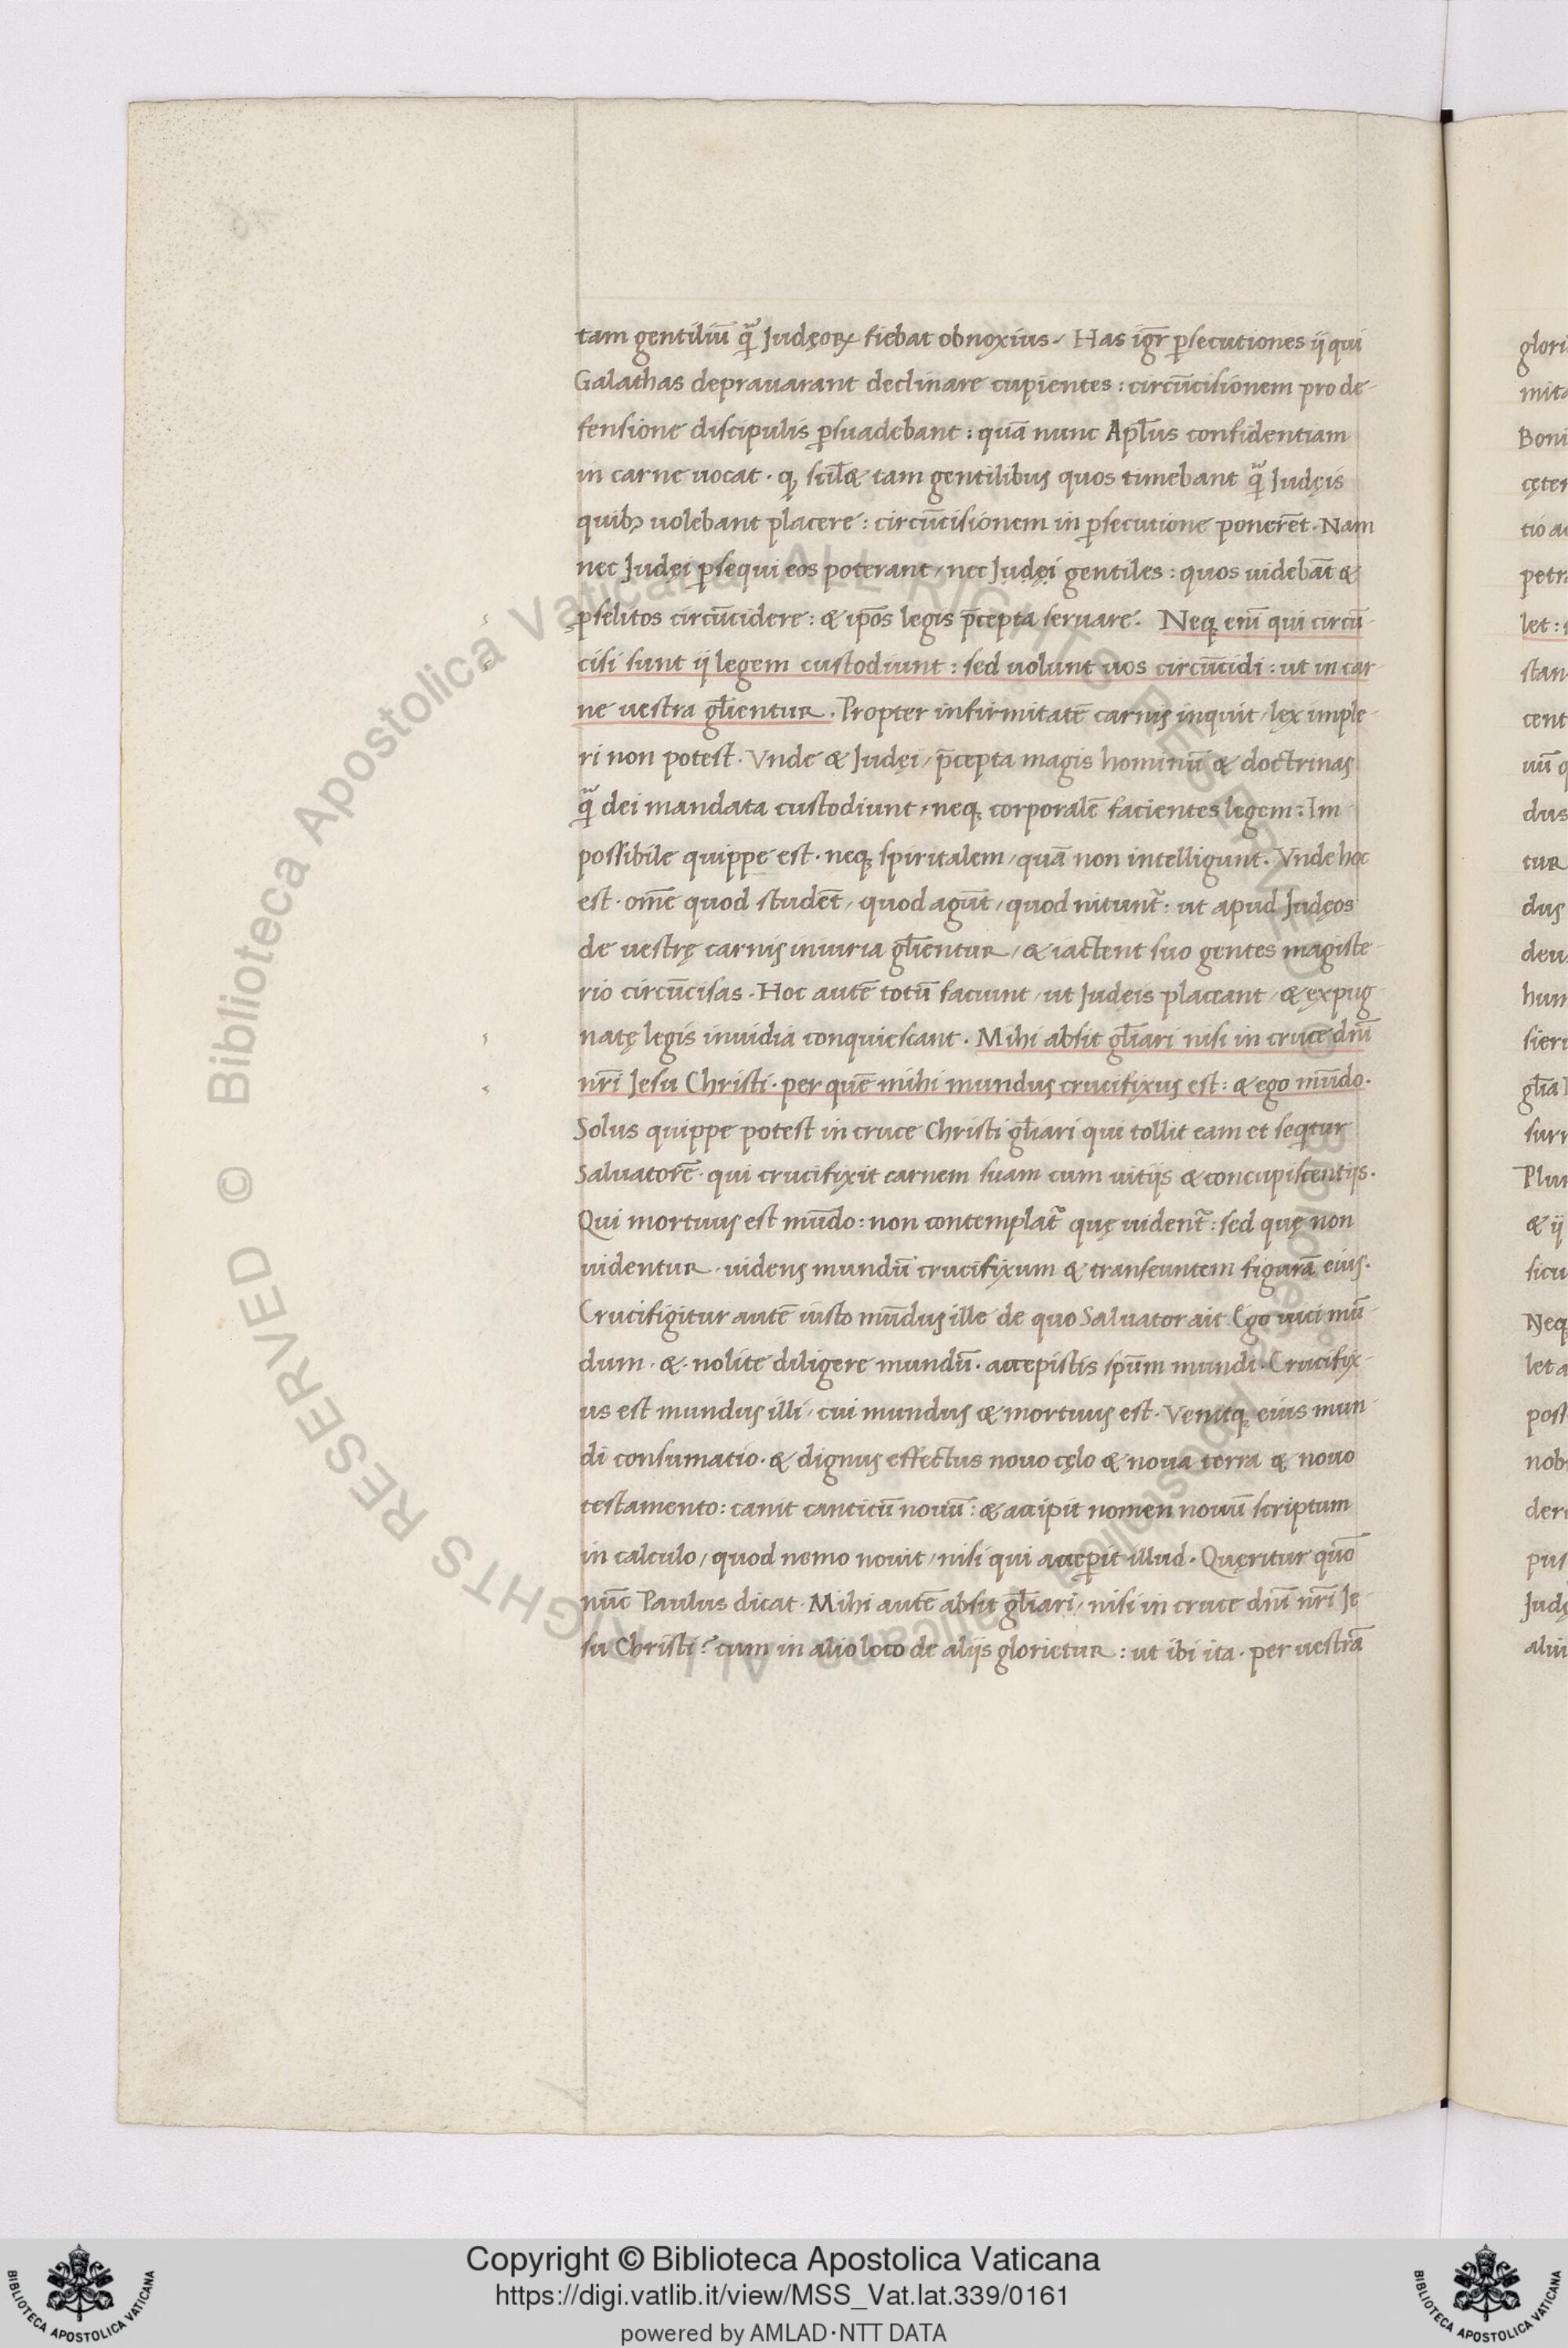 tam gentiliū quã Judęoꝝ fiebat obnoxius. Has igr̄ ꝑsecutiones ij qui
Galathas deprauarant declinare cupientes : circūcisionem pro de-
fensione discipulis ꝑsuadebant : quā nunc Apl̄us confidentiam
in carne uocat · ꝙ scil̄& tam gentilibus quos timebant quã Judęis
quibꝫ uolebant placere : circūcisionem in ꝑsecutione ponerēt. Nam
nec Judęi ꝑsequi eos poterant / nec Judęi gentiles : quos uidebāt &
ꝓselitos circūcidere : & ip̄os legis p̄cepta seruare. Neqꝫ enī qui circū-
cisi sunt ij legem custodiunt : sed uolunt uos circūcidi : ut in car-
ne uestra gl̄ientur. Propter infirmitatē carnis inquit / lex imple-
ri non potest. Vnde & Judęi / p̄cepta magis hominū & doctrinas
quã dei mandata custodiunt / neqꝫ corporalē facientes legem : Im
possibile quippe est · neqꝫ spiritalem / quā non intelligunt. Vnde hoc
est · om̄e quod studēt / quod agūt / quod nitunt᷑ : ut apud Judęos
de uestrę carnis iniuria gl̄ientur / & iactent suo gentes magiste-
rio circūcisas. Hoc autē totū faciunt / ut Judęis placeant / & expug
natę legis inuidia conquiescant. Mihi absit gl̄iari nisi in cruce dn̄i
nr̄i Jesu Christi · per quē mihi mundus crucifixus est : & ego mūdo.
Solus quippe potest in cruce Christi gl̄iari qui tollit eam et seqͥtur
Saluatorē · qui crucifixit carnem suam cum uitijs & concupiscentijs.
Qui mortuus est mūdo : non contemplat᷑ quę uident᷑ : sed quę non
uidentur · uidens mundū crucifixum & transeuntem figurā eius.
Crucifigitur autē iusto mūdus ille de quo Saluator ait Ego uici mū-
dum · & · nolite diligere mundū · accepistis sp̄um mundi. Crucifix-
us est mundus illi / cui mundus & mortuus est. Venitqꝫ eius mun-
di consumatio · & dignus effectus nouo cęlo & noua terra & nouo
testamento : canit canticū nouū : & accipit nomen nouū scriptum
in calculo / quod nemo nouit / nisi qui acceꝑit illud. Quęritur quō
nūc Paulus dicat. Mihi autē absit gl̄iari / nisi in cruce dn̄i nr̄i Je-
su Christi? cum in alio loco de alijs glorietur : ut ibi ita · per uestrā
glori
mita
Boni
cęter
tio a
petr
let :
stan
cent
uū q
dus
tur
dus
deu
hun
sieri
gl̄ia
surr
Plur
& ij
sicu
Neq
let a
post
nob
der
pus
Judę
aliu
© Biblioteca Apostolica Vaticana ALL RIGHTS RESERVED
© Biblioteca Apostolica Vaticana ALL RIGHTS RESERVED
Copyright © Biblioteca Apostolica Vaticana
https://digi.vatlib.it/view/MSS_Vat.lat.339/0161
powered by AMLAD·NTT DATA
BIBLIOTECA APOSTOLICA VATICANA
BIBLIOTECA APOSTOLICA VATICANA